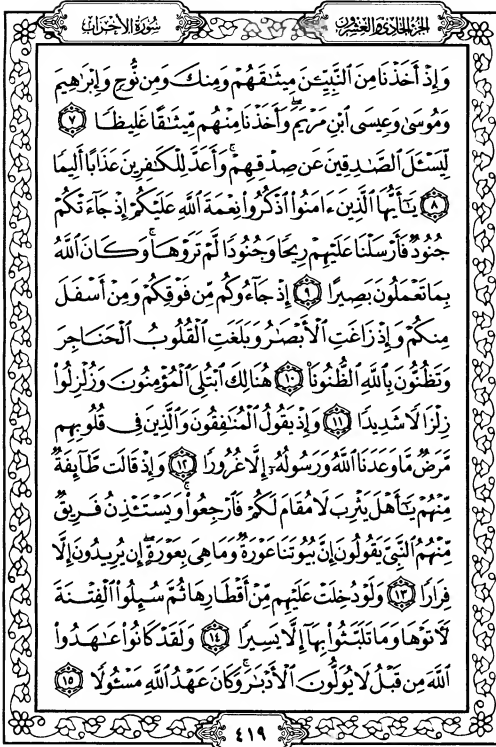 سُورَةُ الأَحْزَابِ الجُزْءُ الحَادِي وَالعِشْرُونَ
وَإِذْ أَخَذْنَا مِنَ ٱلنَّبِيِّـۧنَ مِيثَٰقَهُمْ وَمِنكَ وَمِن نُّوحٍ وَإِبْرَٰهِيمَ
وَمُوسَىٰ وَعِيسَى ٱبْنِ مَرْيَمَ ۖ وَأَخَذْنَا مِنْهُم مِّيثَٰقًا غَلِيظًا ٧
لِّيَسْـَٔلَ ٱلصَّٰدِقِينَ عَن صِدْقِهِمْ ۚ وَأَعَدَّ لِلْكَٰفِرِينَ عَذَابًا أَلِيمًا
٨ يَٰٓأَيُّهَا ٱلَّذِينَ ءَامَنُوا۟ ٱذْكُرُوا۟ نِعْمَةَ ٱللَّهِ عَلَيْكُمْ إِذْ جَآءَتْكُمْ
جُنُودٌ فَأَرْسَلْنَا عَلَيْهِمْ رِيحًا وَجُنُودًا لَّمْ تَرَوْهَا ۚ وَكَانَ ٱللَّهُ
بِمَا تَعْمَلُونَ بَصِيرًا ٩ إِذْ جَآءُوكُم مِّن فَوْقِكُمْ وَمِنْ أَسْفَلَ
مِنكُمْ وَإِذْ زَاغَتِ ٱلْأَبْصَٰرُ وَبَلَغَتِ ٱلْقُلُوبُ ٱلْحَنَاجِرَ
وَتَظُنُّونَ بِٱللَّهِ ٱلظُّنُونَا۠ ١٠ هُنَالِكَ ٱبْتُلِىَ ٱلْمُؤْمِنُونَ وَزُلْزِلُوا۟
زِلْزَالًا شَدِيدًا ١١ وَإِذْ يَقُولُ ٱلْمُنَٰفِقُونَ وَٱلَّذِينَ فِى قُلُوبِهِم
مَّرَضٌ مَّا وَعَدَنَا ٱللَّهُ وَرَسُولُهُۥٓ إِلَّا غُرُورًا ١٢ وَإِذْ قَالَت طَّآئِفَةٌ
مِّنْهُمْ يَٰٓأَهْلَ يَثْرِبَ لَا مُقَامَ لَكُمْ فَٱرْجِعُوا۟ ۚ وَيَسْتَـْٔذِنُ فَرِيقٌ
مِّنْهُمُ ٱلنَّبِىَّ يَقُولُونَ إِنَّ بُيُوتَنَا عَوْرَةٌ وَمَا هِىَ بِعَوْرَةٍ ۖ إِن يُرِيدُونَ إِلَّا
فِرَارًا ١٣ وَلَوْ دُخِلَتْ عَلَيْهِم مِّنْ أَقْطَارِهَا ثُمَّ سُئِلُوا۟ ٱلْفِتْنَةَ
لَءَاتَوْهَا وَمَا تَلَبَّثُوا۟ بِهَآ إِلَّا يَسِيرًا ١٤ وَلَقَدْ كَانُوا۟ عَٰهَدُوا۟
ٱللَّهَ مِن قَبْلُ لَا يُوَلُّونَ ٱلْأَدْبَٰرَ ۚ وَكَانَ عَهْدُ ٱللَّهِ مَسْـُٔولًا ١٥
٤١٩